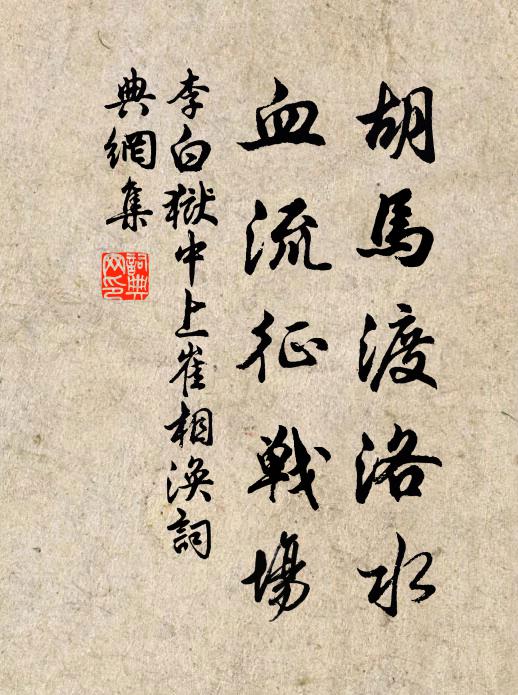 胡馬渡洛水
血流征戰場
李白獄中上崔相渙詞
典網集
詞典
网印